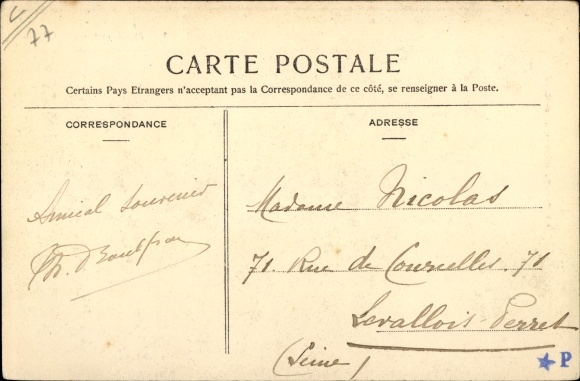 77
CARTE POSTALE
Certains Pays Etrangers n'acceptant pas la Correspondance de ce côté, se renseigner à la Poste.
CORRESPONDANCE
Amical Souvenir
ADRESSE
Madame Nicolas
71. Rue de Courcelles. 71
Levallois-Perret
(Seine)
P